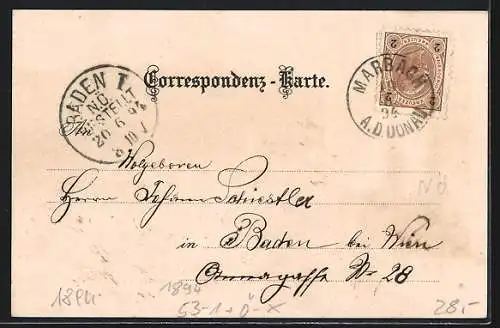 Correspondenz-Karte.
BADEN 1
N.Ö.
BESTELLT
20 6 94
MARBACH
6
94
A.D. DONAU
2 2
An
Wolgeboren
Herrn Johann Schiestler
in Baden bei Wien
Annagasse No 28
NÖ
1894
1894
53-1+Ö-X
28,-